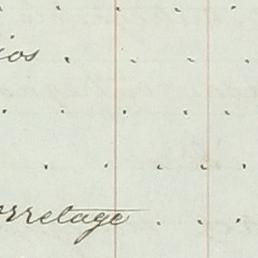 ios
orretage